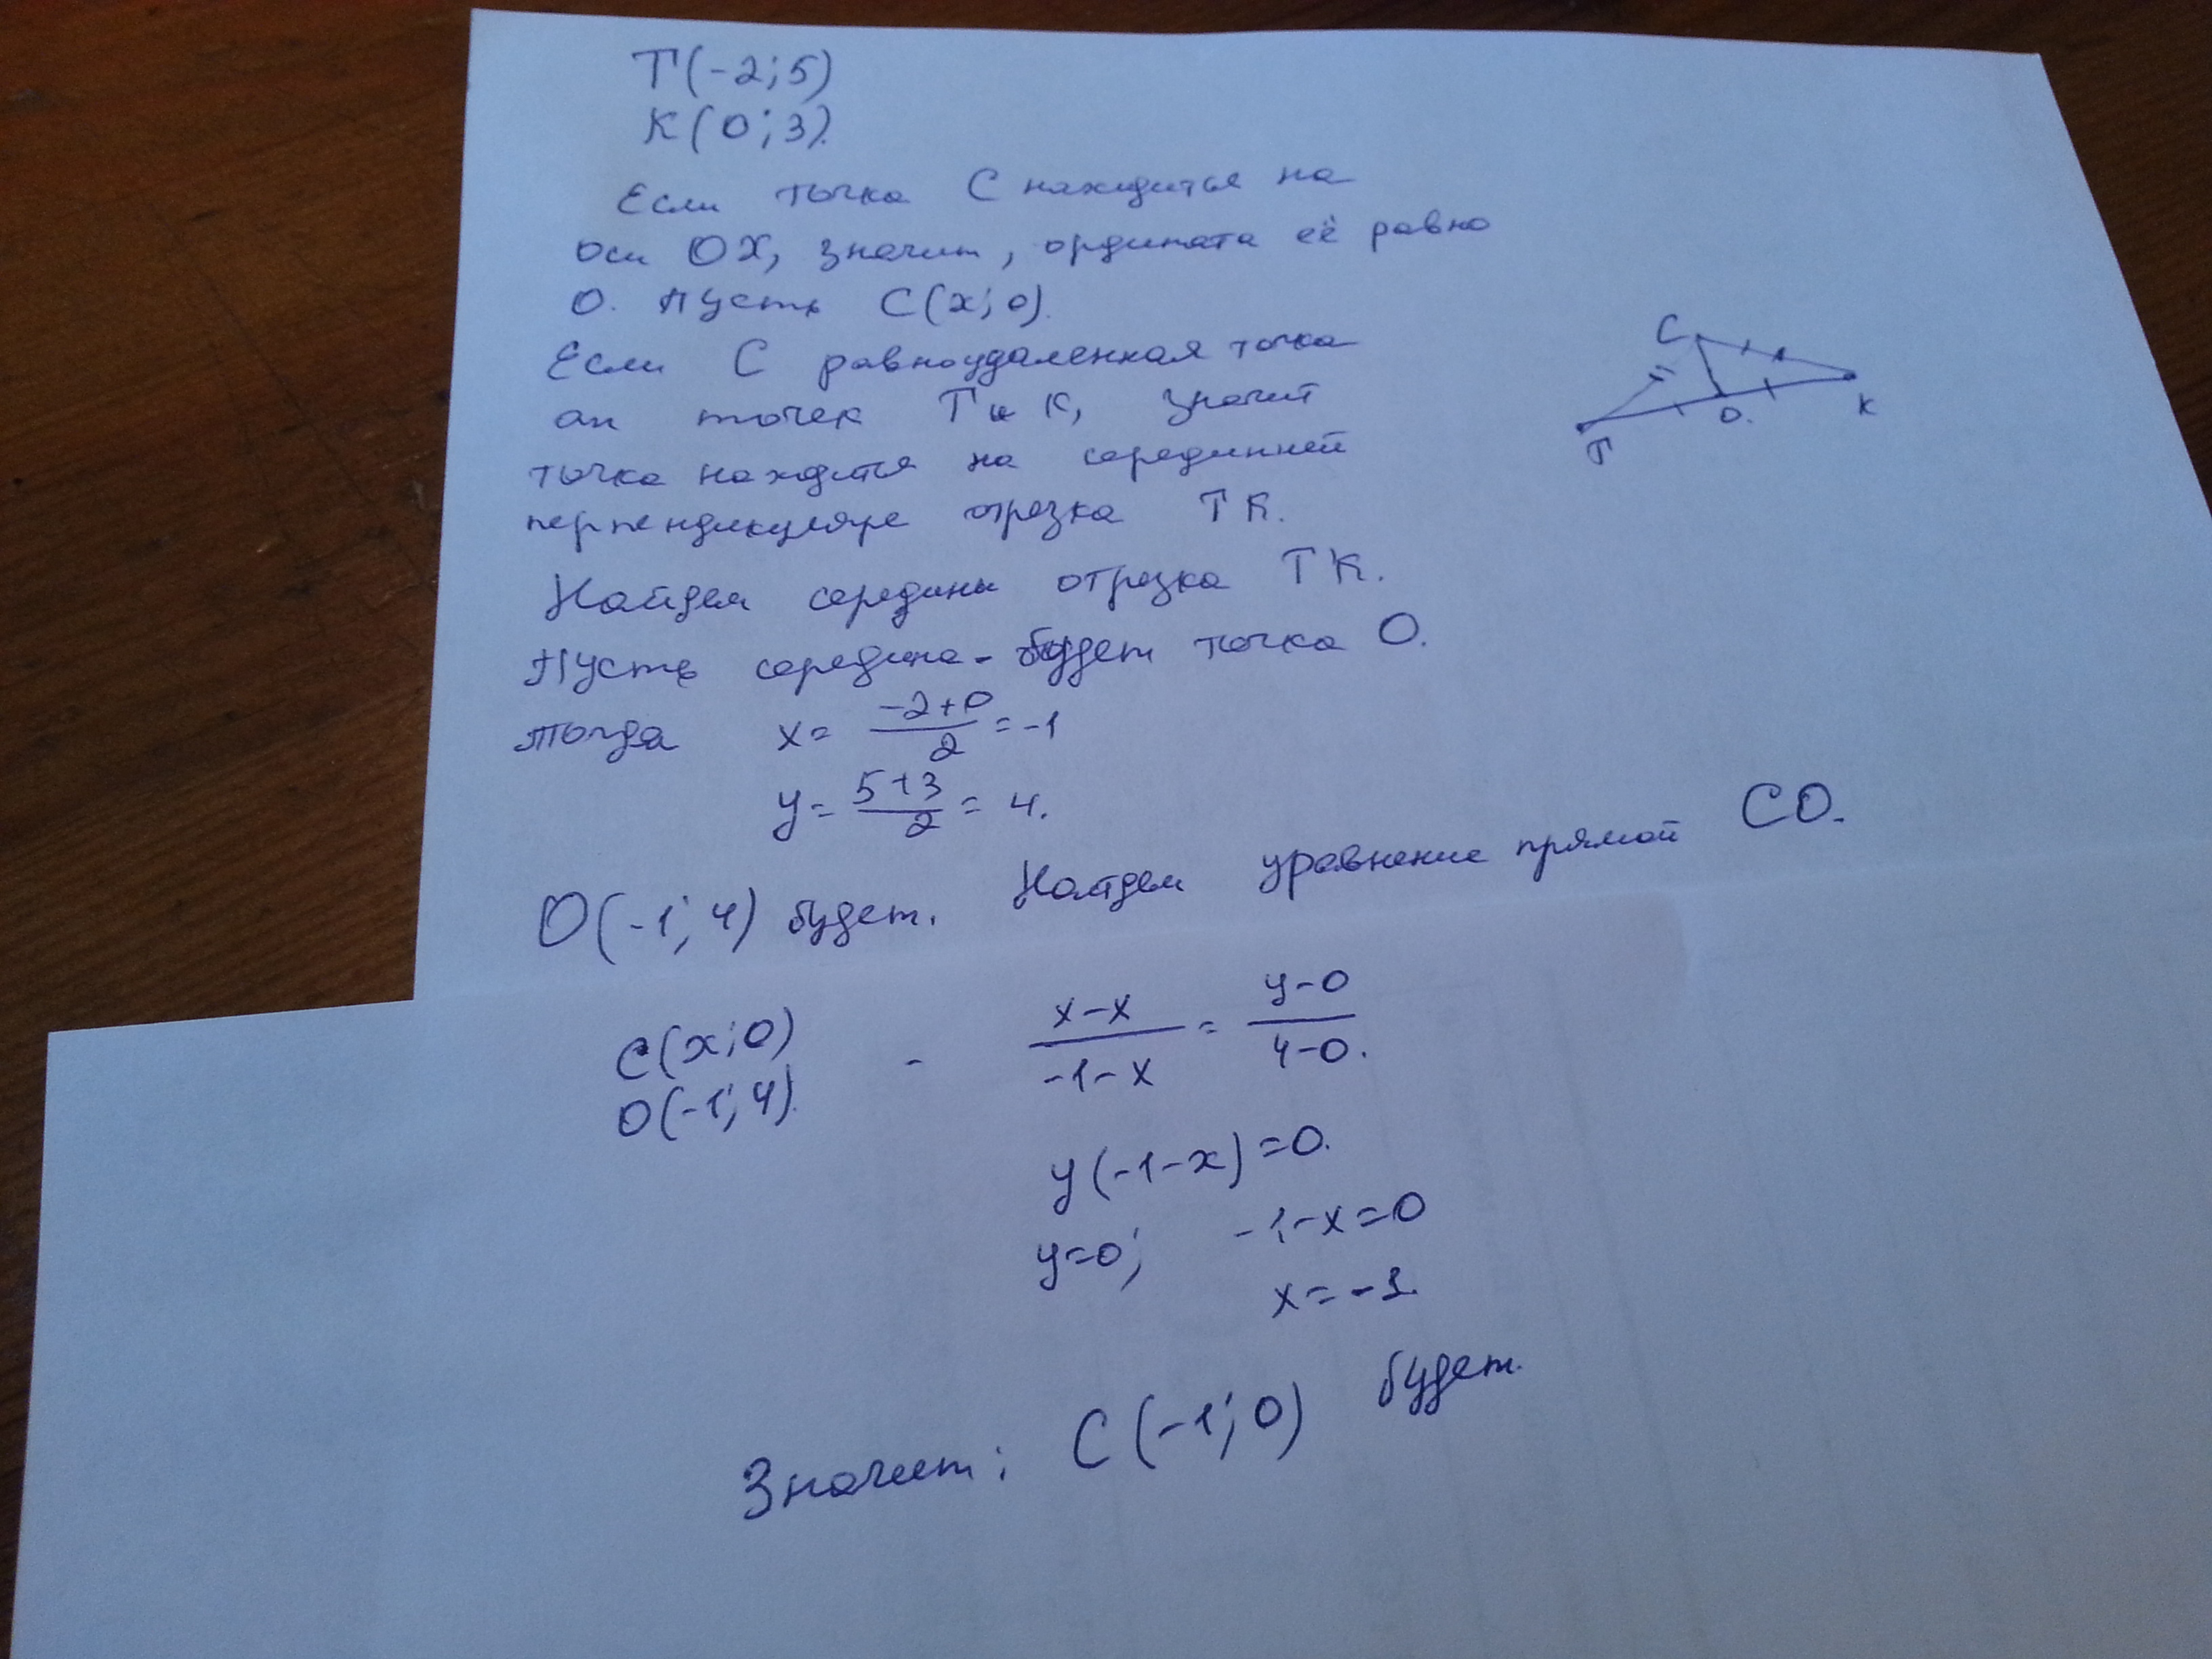 T(-2;5)
K(0;3).
Если точка C находится на
оси OX, значит, ордината её равно
0. Пусть C(x;0).
Если C равноудаленная точка
от точек T и K, значит
точка находится на серединней
перпендикуляре отрезка TK.
Найдем середины отрезка TK.
Пусть середина - будет точка O.
тогда x = (-2+0)/2 = -1
y = (5+3)/2 = 4.
O(-1;4) будет. Найдем уравнение прямой CO.
C(x;0) - (x-x)/(-1-x) = (y-0)/(4-0).
O(-1;4).
y(-1-x)=0.
y=0; -1-x=0
x=-1.
Значит: C(-1;0) будет.
C
T
O.
K